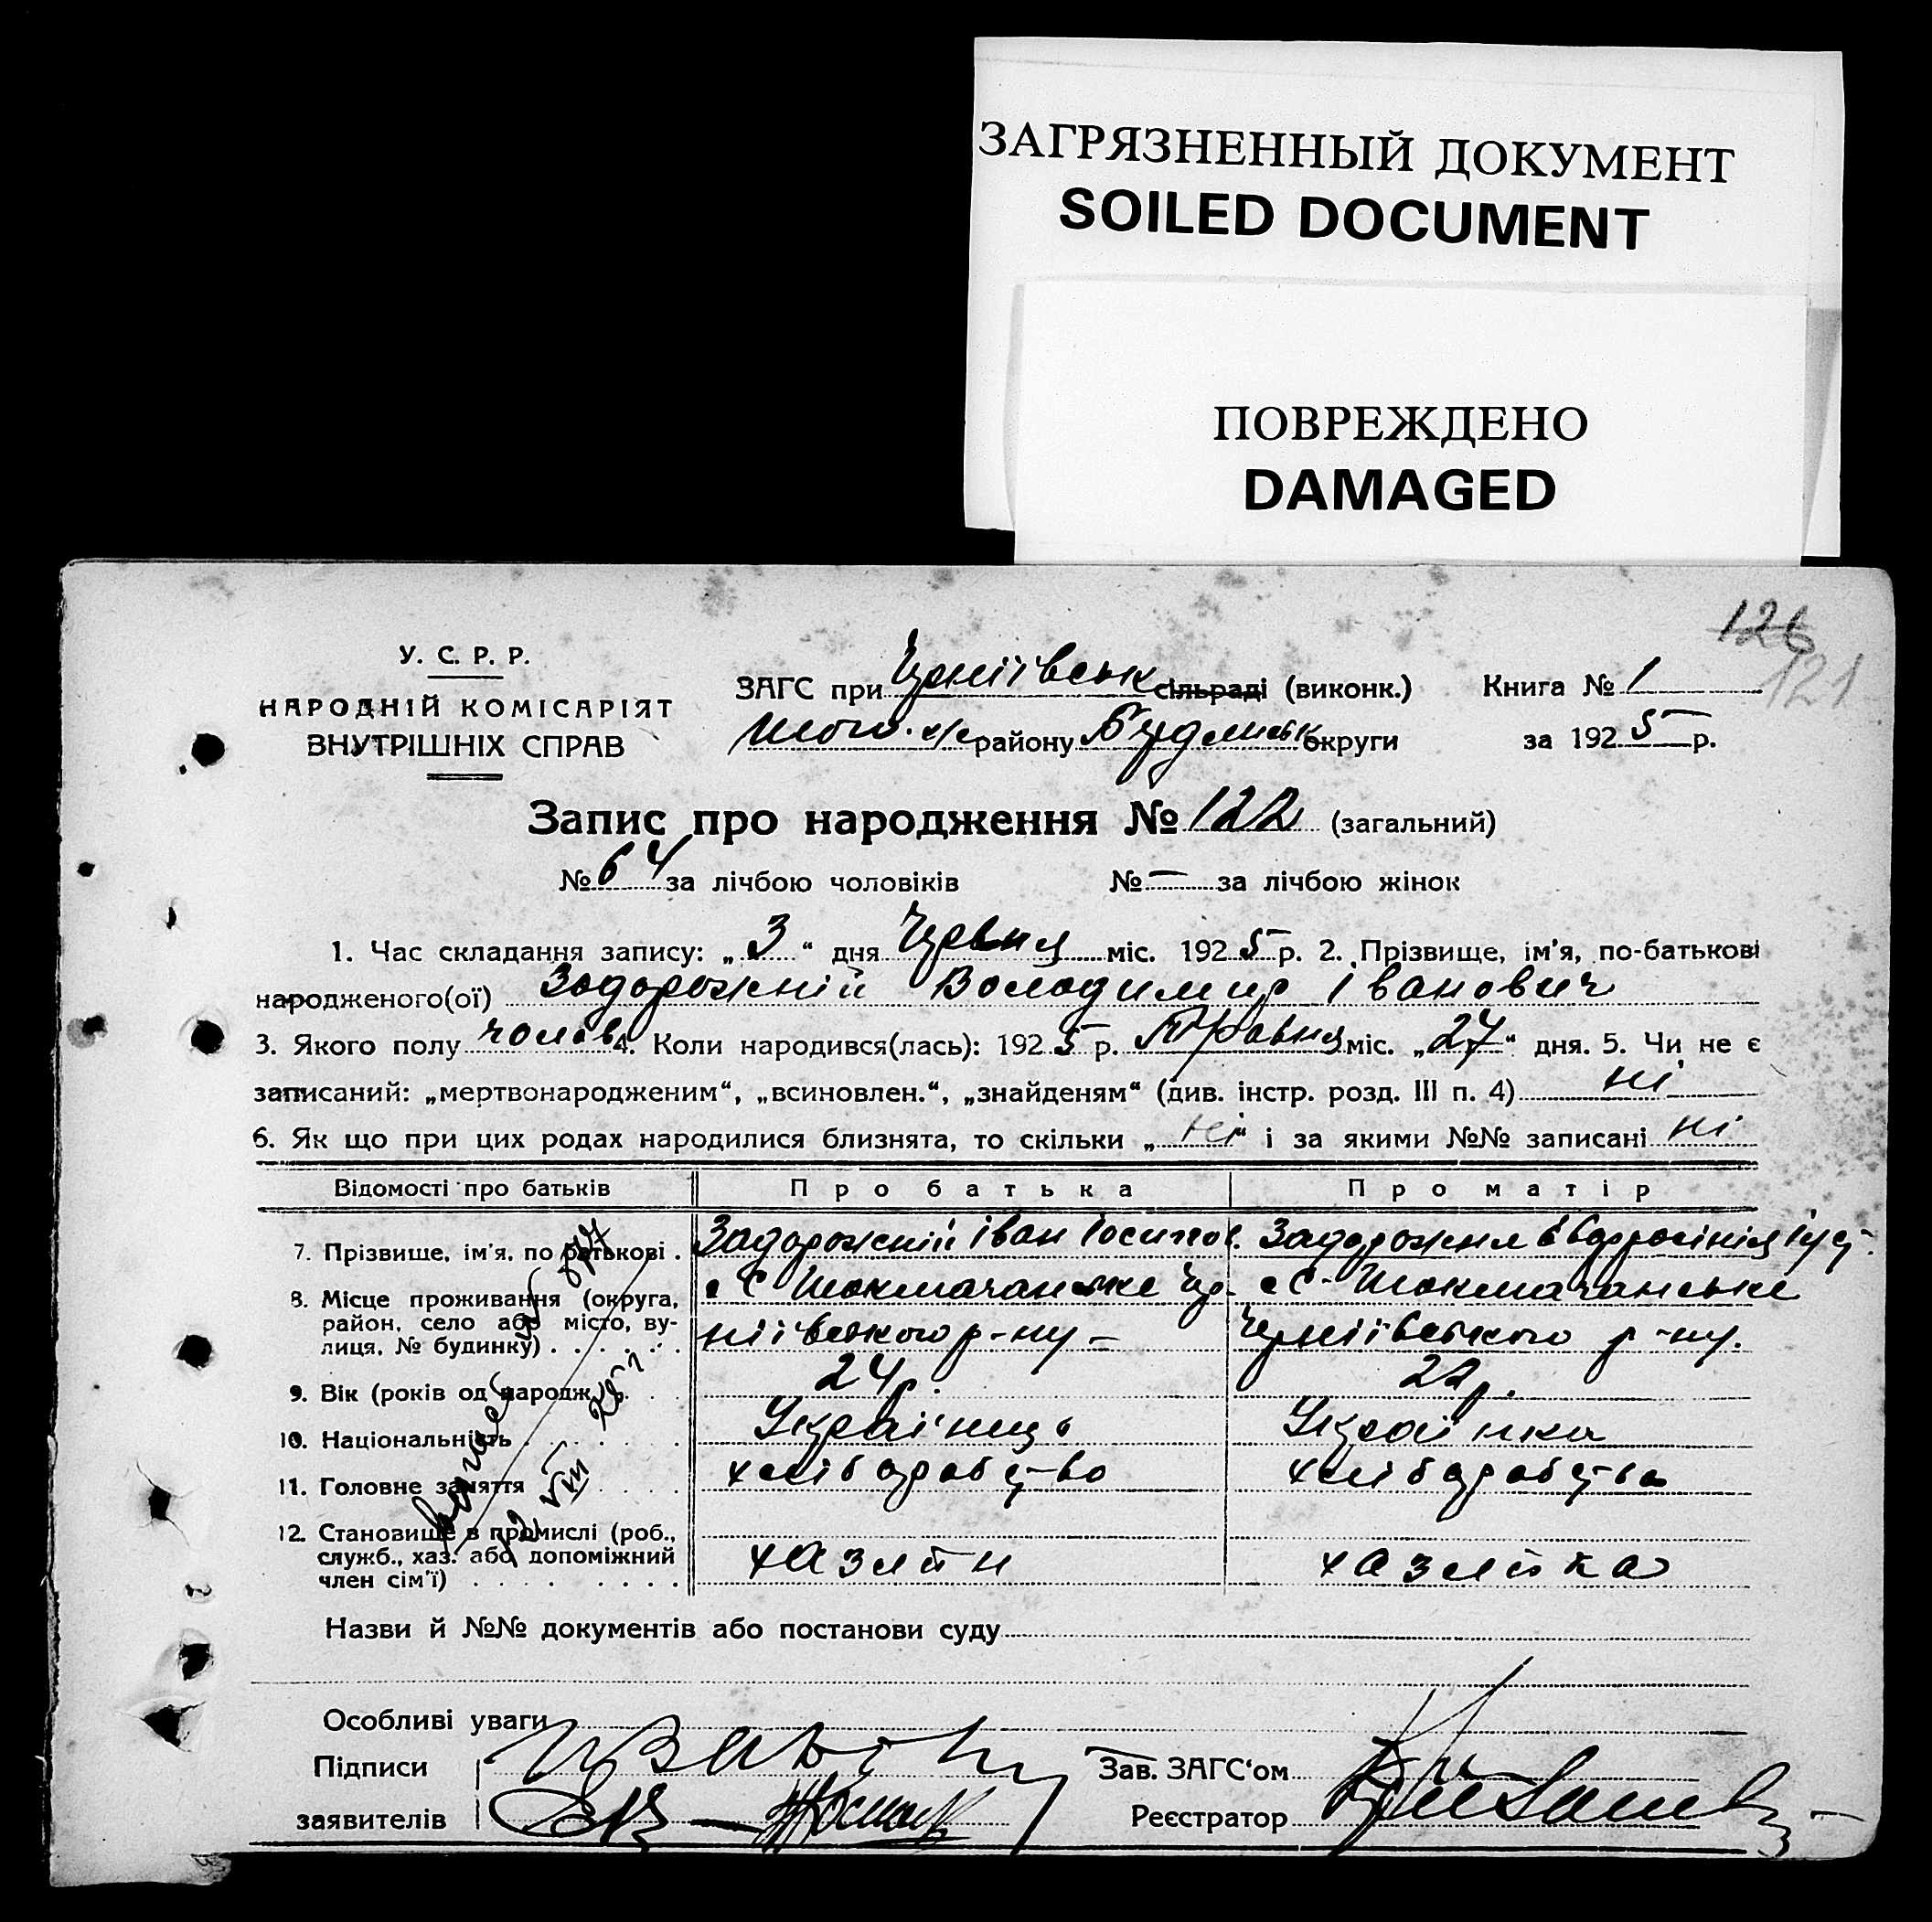 ЗАГРЯЗНЕННЫЙ ДОКУМЕНТ
SOILED DOCUMENT
ПОВРЕЖДЕНО
DAMAGED
126
121
У. С. Р. Р.
НАРОДНІЙ КОМІСАРІЯТ
ВНУТРІШНІХ СПРАВ
ЗАГС при Черніївськ сільраді (виконк.) Книга № 1
району округи за 1925 р.
Запис про народження № 122 (загальний)
№ 64 за лічбою чоловіків № — за лічбою жінок
1. Час складання запису: „3“ дня Червня міс. 1925 р. 2. Прізвище, ім'я, по-батькові
народженого(ої) Задорожній Володимир Іванович
3. Якого полу чолов 4. Коли народився(лась): 1925 р. Травня міс. „27“ дня. 5. Чи не є
записаний: „мертвонародженим“, „всиновлен.“, „знайденям“ (див. інстр. розд. III п. 4) ні
6. Як що при цих родах народилися близнята, то скільки „ні“ і за якими №№ записані ні
Відомості про батьків Про батька Про матір
7. Прізвище, ім'я, по батькові . Задорожній Іван Іосипов. Задорожня
8. Місце проживання (округа, район, село або місто, вулиця, № будинку) . . . . . С. Токмачанське Черніївського р-ну — С. Токмачанське Черніївського р-ну.
9. Вік (років од народж.) . . . 24 р. 22 р.
10. Національність . . . . . . Українець Українка
11. Головне заняття . . . . . хліборобство хліборобство
12. Становище в промислі (роб., служб., хаз. або допоміжний член сім'ї) . . . . . . . . хазяїн хазяйка
Назви й №№ документів або постанови суду
Особливі уваги
Підписи Зав. ЗАГС'ом
заявителів Реєстратор